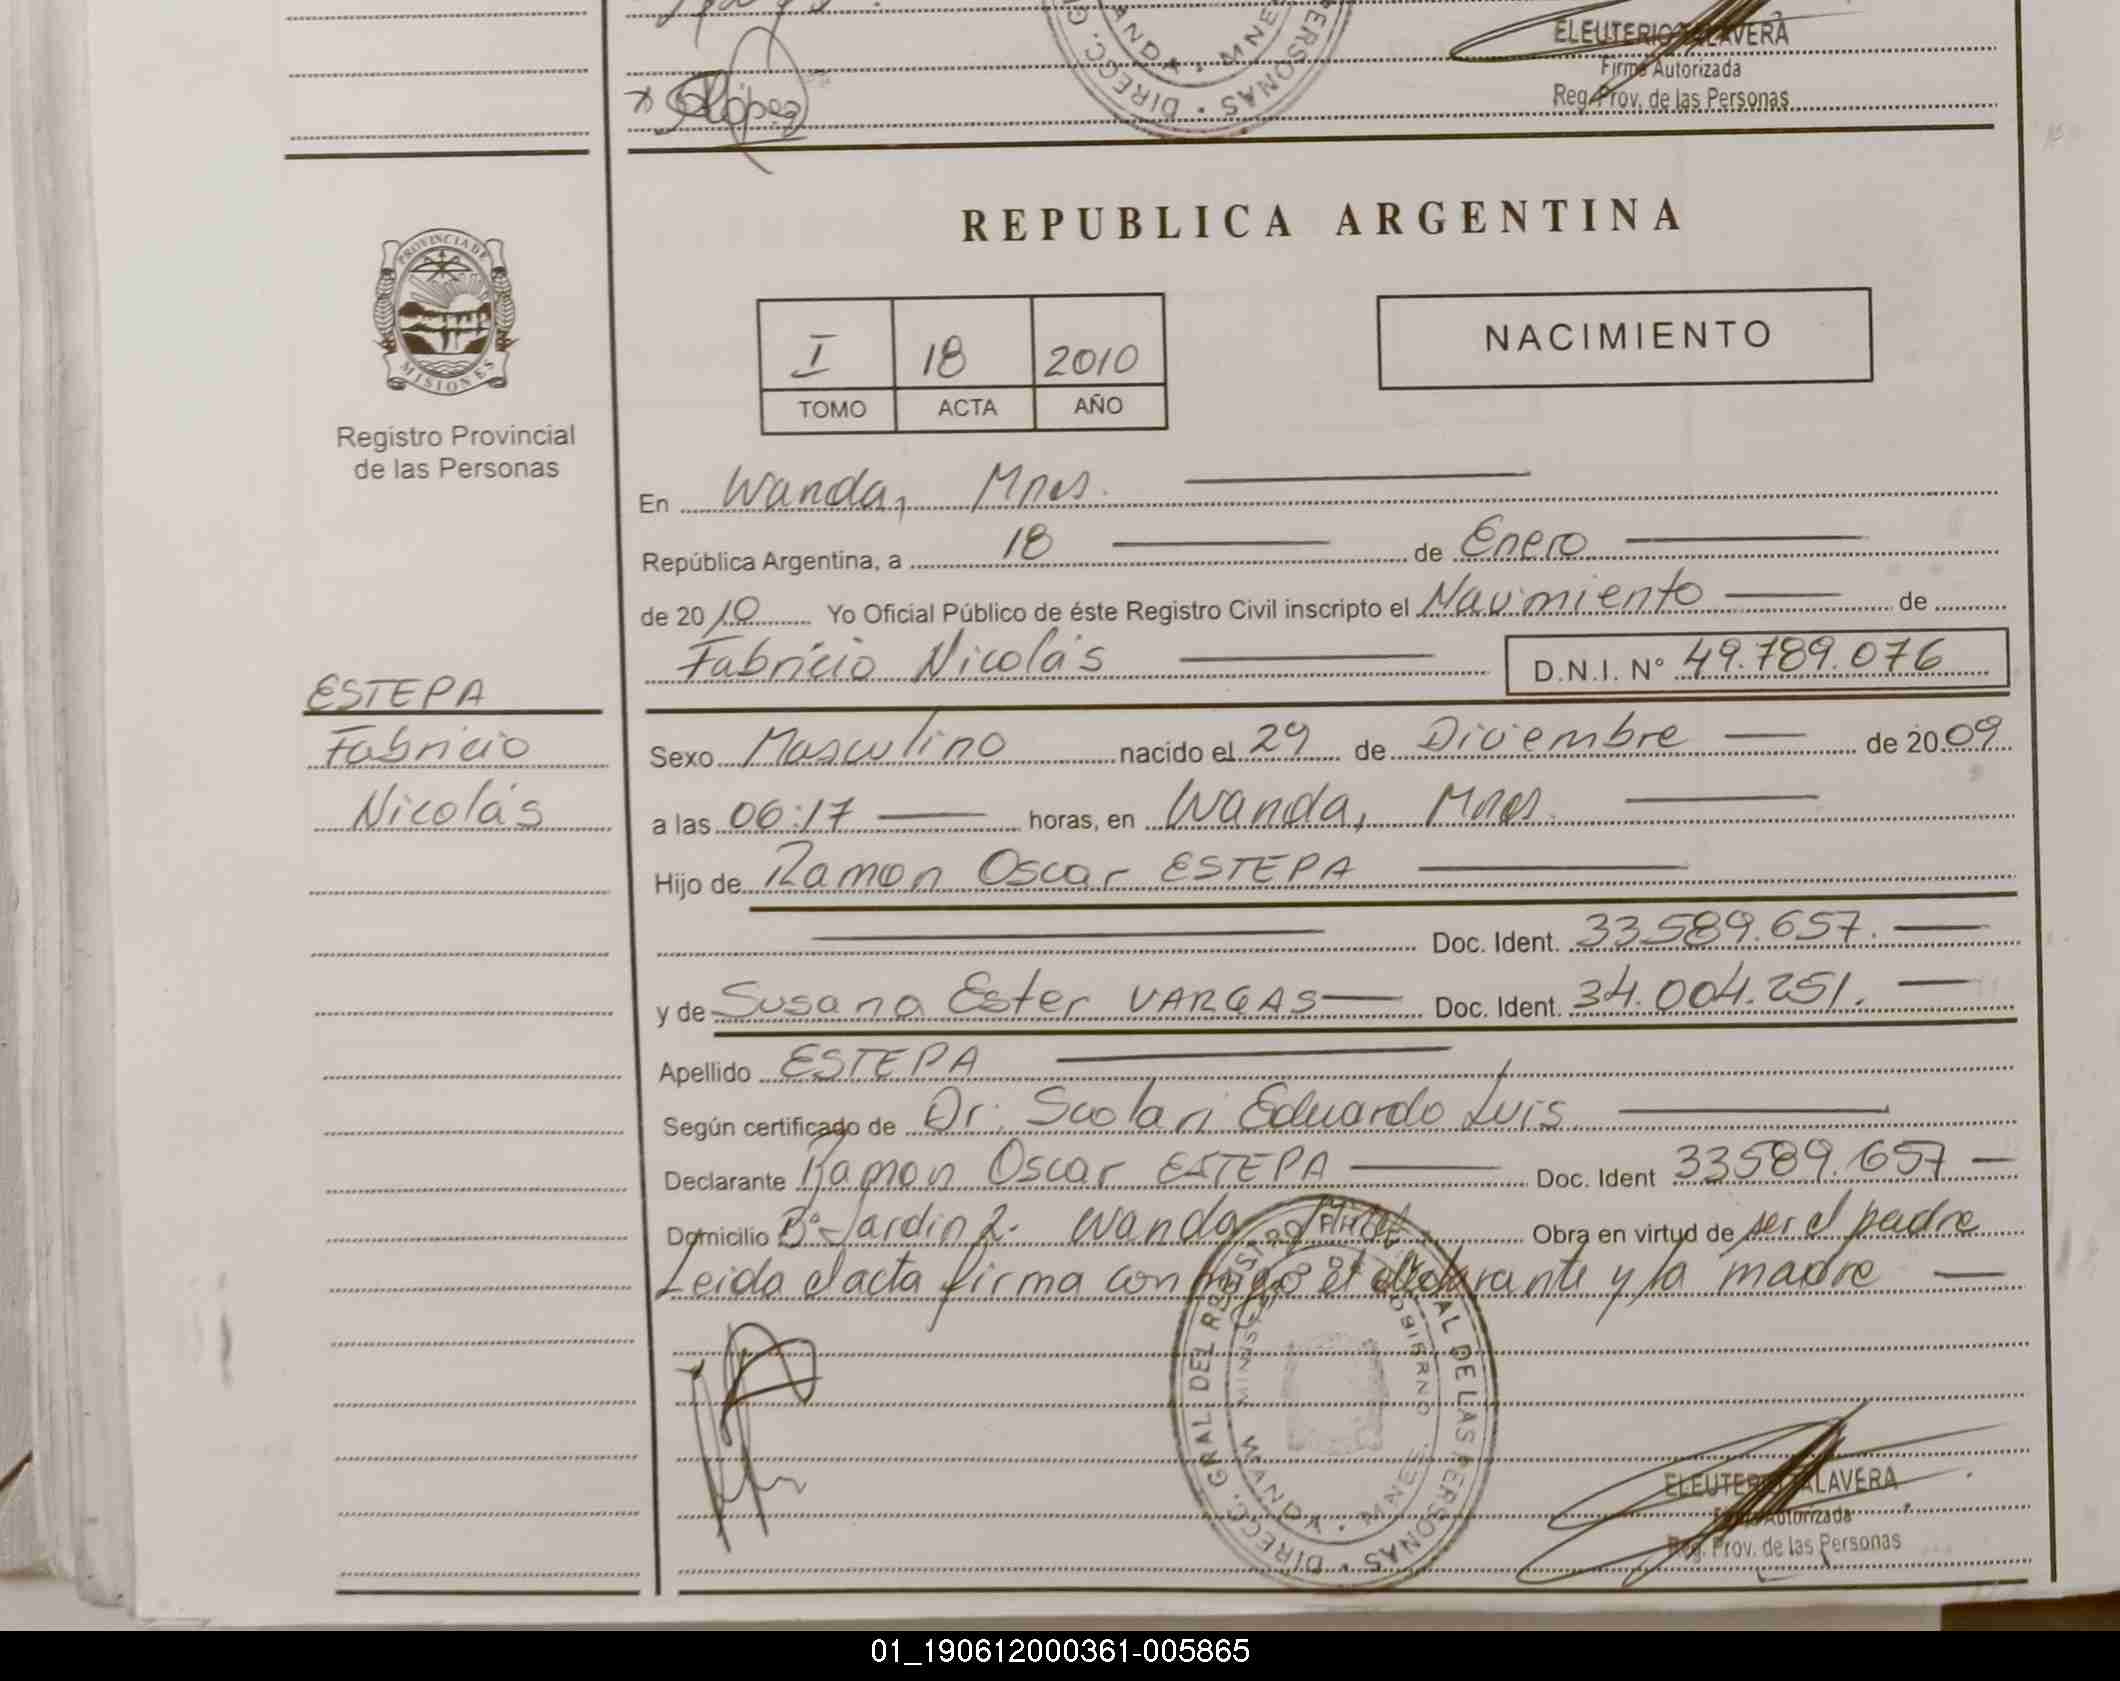 ELEUTERIO TALAVERA
Firma Autorizada
Reg. Prov. de las Personas
López
REPUBLICA ARGENTINA
PROVINCIA DE
MISIONES
Registro Provincial
de las Personas
I 18 2010
TOMO ACTA AÑO
NACIMIENTO
En Wanda, Mnes.
República Argentina, a 18 de Enero
de 2010 Yo Oficial Público de éste Registro Civil inscripto el Nacimiento de
Fabricio Nicolás D.N.I. Nº 49.789.076
ESTEPA
Fabricio
Nicolás
Sexo Masculino nacido el 29 de Diciembre de 2009
a las 06:17 horas, en Wanda, Mnes.
Hijo de Ramon Oscar ESTEPA
Doc. Ident. 33.589.657.
y de Susana Ester VARGAS Doc. Ident. 34.004.251.
Apellido ESTEPA
Según certificado de Dr. Scolari Eduardo Luis
Declarante Ramon Oscar ESTEPA Doc. Ident 33589.657
Domicilio Bº Jardin 2. Wanda Mnes Obra en virtud de ser el padre
Leida el acta firma conmigo el declarante y la madre
DIRECC. GRAL DEL REGISTRO PROVINCIAL DE LAS PERSONAS
MINISTERIO DE GOBIERNO
WANDA · MNES.
ELEUTERIO TALAVERA
Firma Autorizada
Reg. Prov. de las Personas
01_190612000361-005865